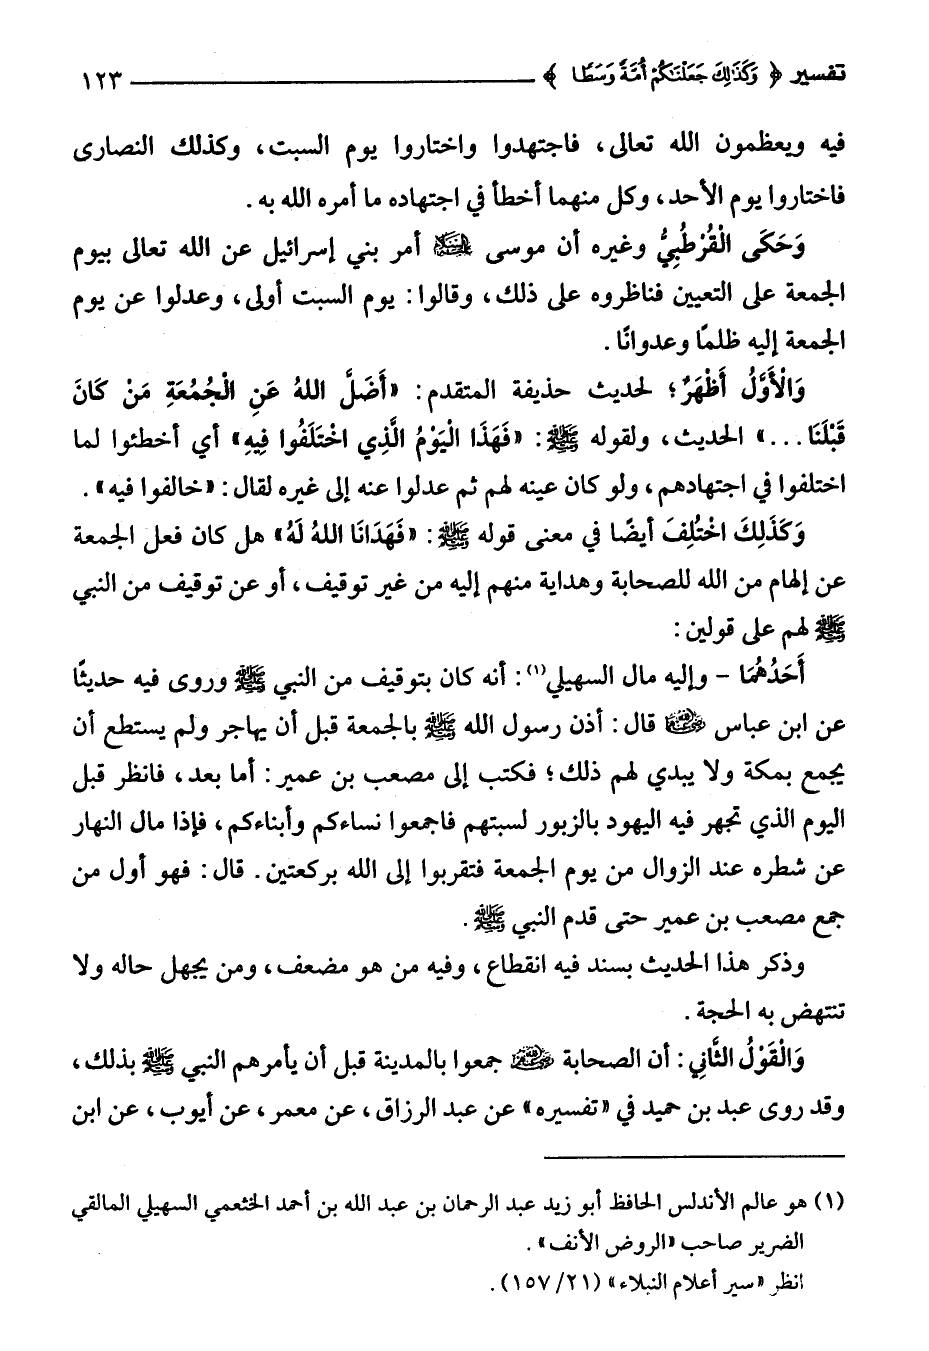 تفسير ﴿ وَكَذَٰلِكَ جَعَلْنَٰكُمْ أُمَّةً وَسَطًا ﴾ ١٢٣
فيه ويعظمون الله تعالى، فاجتهدوا واختاروا يوم السبت، وكذلك النصارى
فاختاروا يوم الأحد، وكل منهما أخطأ في اجتهاده ما أمره الله به.
وَحَكَى الْقُرْطُبِيُّ وغيره أن موسى عليه السلام أمر بني إسرائيل عن الله تعالى بيوم
الجمعة على التعيين فناظروه على ذلك، وقالوا: يوم السبت أولى، وعدلوا عن يوم
الجمعة إليه ظلمًا وعدوانًا.
وَالْأَوَّلُ أَظْهَرُ؛ لحديث حذيفة المتقدم: «أَضَلَّ اللهُ عَنِ الْجُمُعَةِ مَنْ كَانَ
قَبْلَنَا...» الحديث، ولقوله ﷺ: «فَهَذَا الْيَوْمُ الَّذِي اخْتَلَفُوا فِيهِ» أي أخطئوا لما
اختلفوا في اجتهادهم، ولو كان عينه لهم ثم عدلوا عنه إلى غيره لقال: «خالفوا فيه».
وَكَذَلِكَ اخْتُلِفَ أيضًا في معنى قوله ﷺ: «فَهَدَانَا اللهُ لَهُ» هل كان فعل الجمعة
عن إلهام من الله للصحابة وهداية منهم إليه من غير توقيف، أو عن توقيف من النبي
ﷺ لهم على قولين:
أَحَدُهُمَا - وإليه مال السهيلي(١): أنه كان بتوقيف من النبي ﷺ وروى فيه حديثًا
عن ابن عباس رضي الله عنهما قال: أذن رسول الله ﷺ بالجمعة قبل أن يهاجر ولم يستطع أن
يجمع بمكة ولا يبدي لهم ذلك؛ فكتب إلى مصعب بن عمير: أما بعد، فانظر قبل
اليوم الذي تجهر فيه اليهود بالزبور لسبتهم فاجمعوا نساءكم وأبناءكم، فإذا مال النهار
عن شطره عند الزوال من يوم الجمعة فتقربوا إلى الله بركعتين. قال: فهو أول من
جمع مصعب بن عمير حتى قدم النبي ﷺ.
وذكر هذا الحديث بسند فيه انقطاع، وفيه من هو مضعف، ومن يجهل حاله ولا
تنتهض به الحجة.
وَالْقَوْلُ الثَّانِي: أن الصحابة رضي الله عنهم جمعوا بالمدينة قبل أن يأمرهم النبي ﷺ بذلك،
وقد روى عبد بن حميد في «تفسيره» عن عبد الرزاق، عن معمر، عن أيوب، عن ابن
(١) هو عالم الأندلس الحافظ أبو زيد عبد الرحمان بن عبد الله بن أحمد الخثعمي السهيلي المالقي
الضرير صاحب «الروض الأنف».
انظر «سير أعلام النبلاء» (٢١/ ١٥٧).